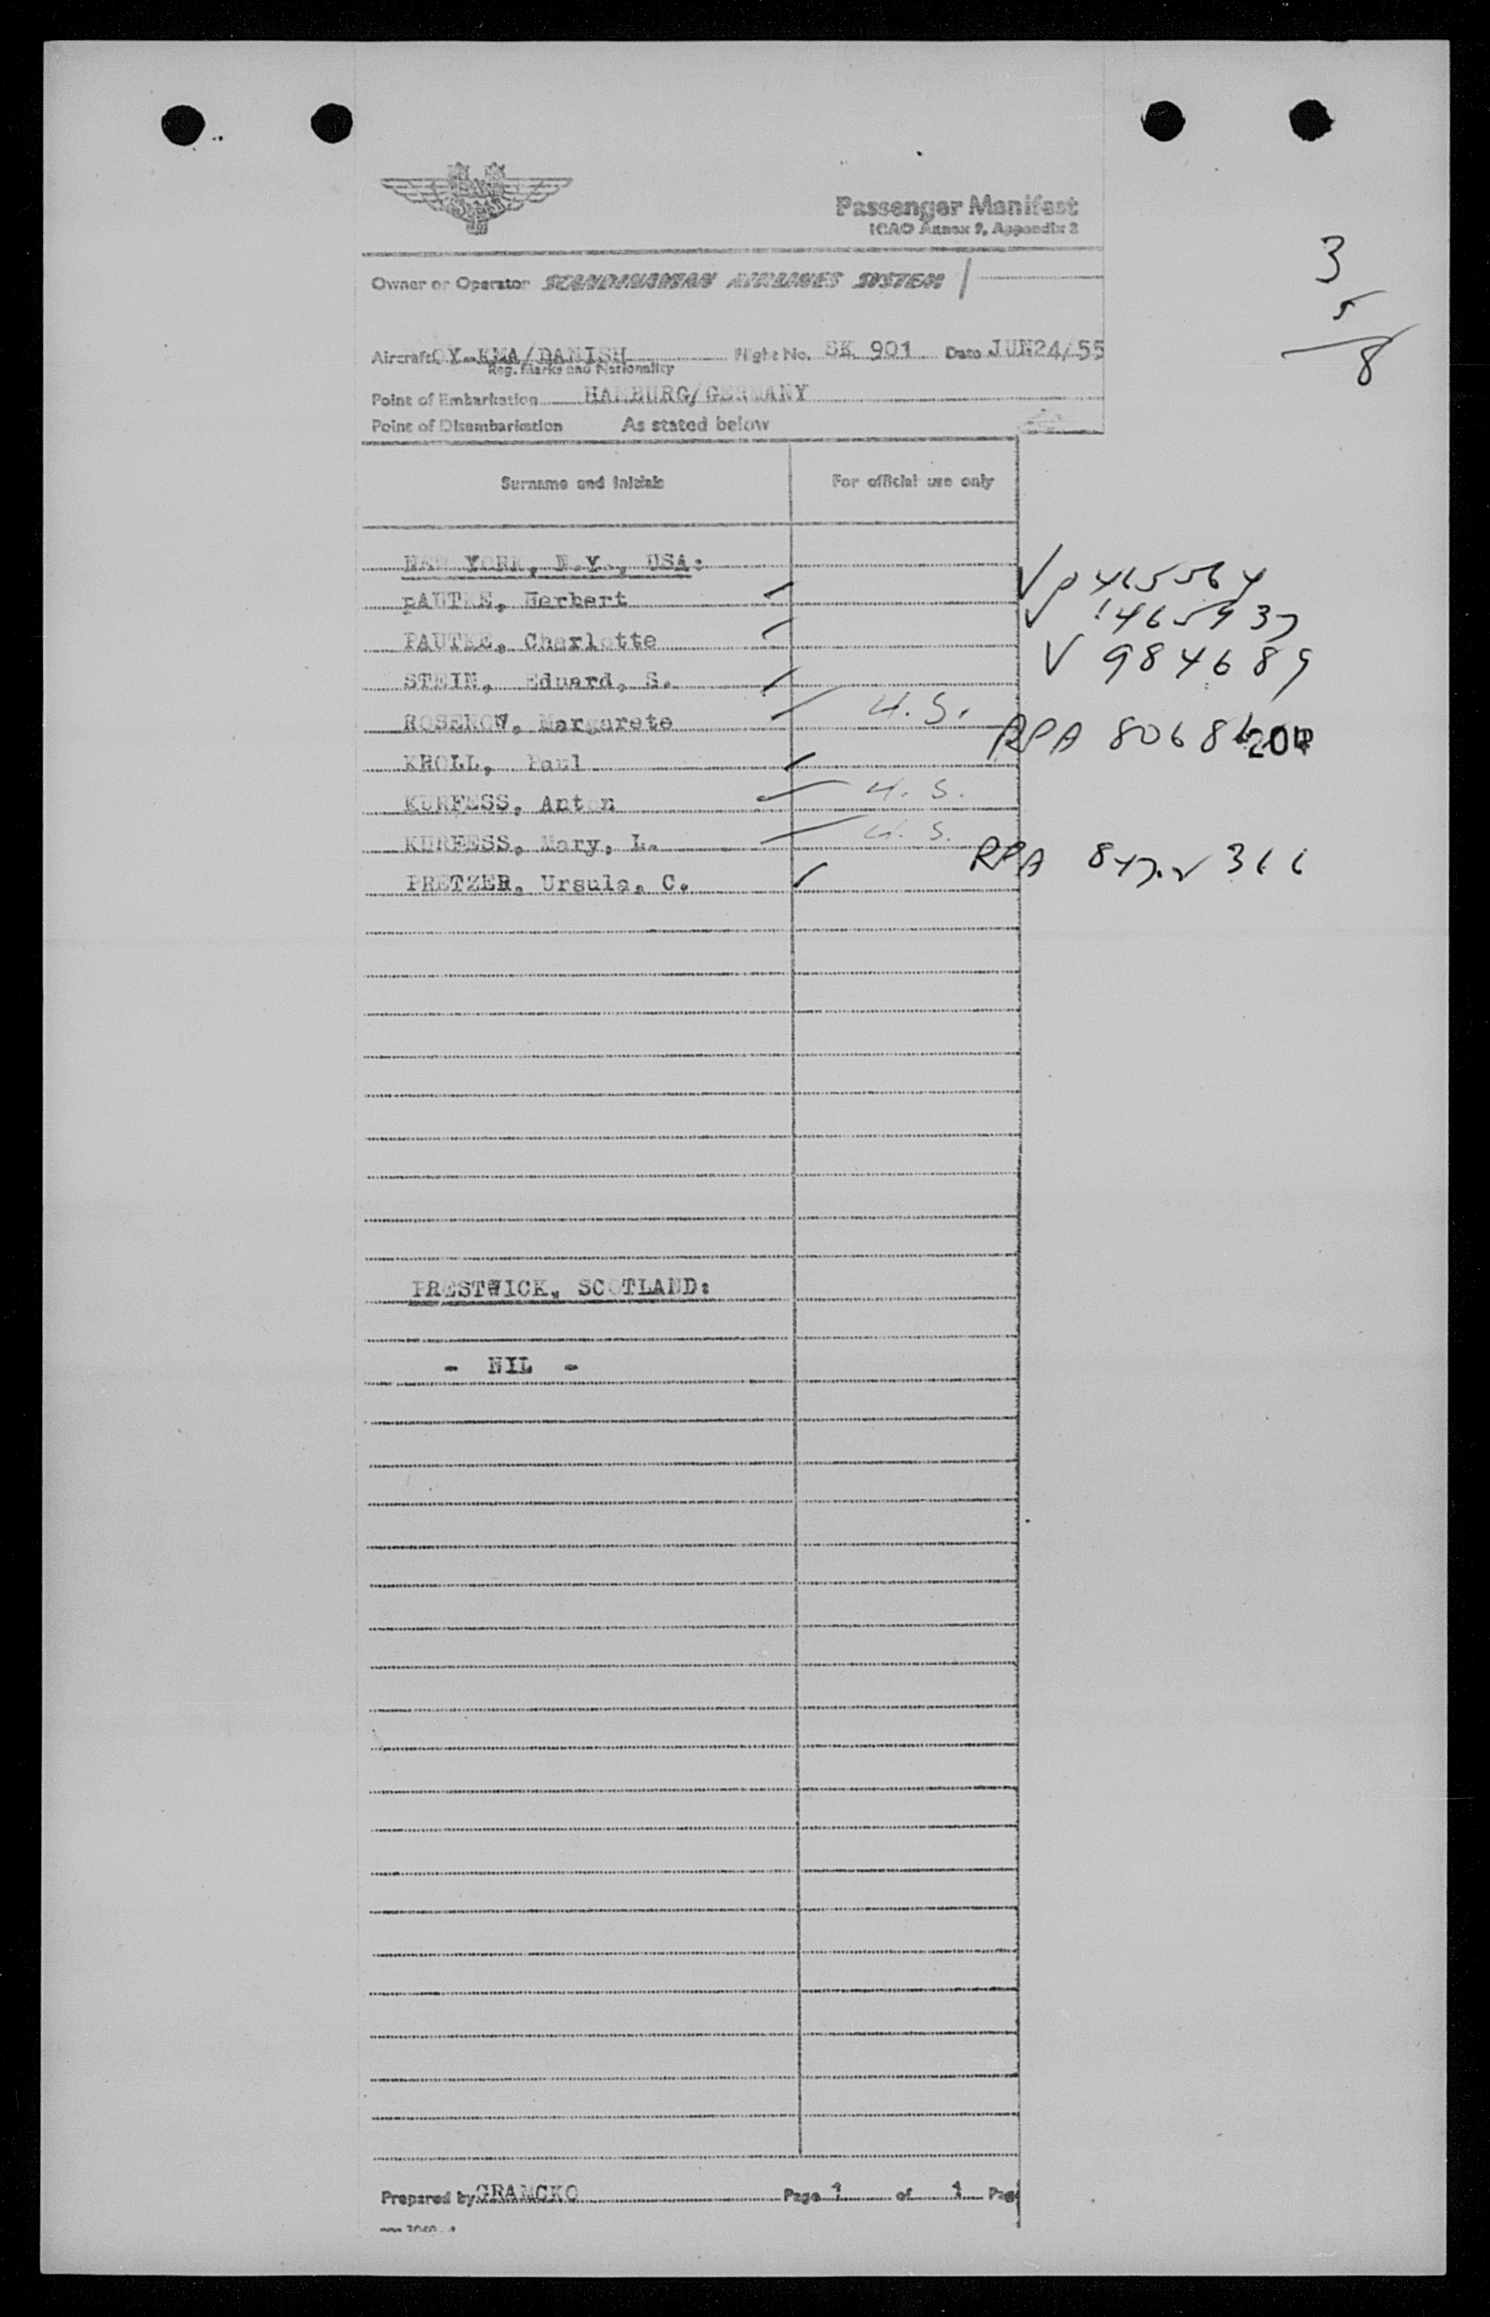 Passenger Manifest
ICAO Annex 9, Appendix 2
3
5
8
Owner or Operator SCANDINAVIAN AIRLINES SYSTEM
Aircraft OY-KMA/DANISH Flight No. SK 901 Date JUN24/55
Reg. Marks and Nationality
Point of Embarkation HAMBURG/GERMANY
Point of Disembarkation As stated below
Surname and Initials For official use only
NEW YORK, N.Y., USA:
pAUTKE, Herbert V p 465564
PAUTKE, Charlotte
STEIN, Eduard, S. V 984689
ROSENOW, Margarete U.S.
KROLL, Paul RPA
KURFESS, Anton U.S.
KURFESS, Mary, L. U.S.
PRETZER, Ursula, C. RPA
PRESTWICK, SCOTLAND:
- NIL -
Prepared by GRAMCKO Page 1 of 1 Page